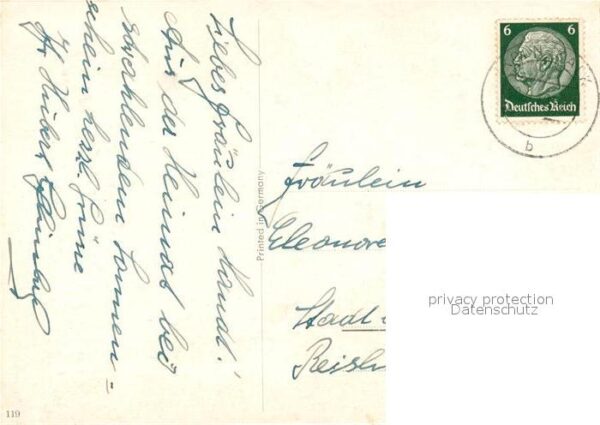 Liebes Fräulein Handl!
Aus der Heimat bei
strahlendem Sonnen-
schein herzl. Grüße
Ihr Hubert
Printed in Germany
119
6 6
Deutsches Reich
b
Fräulein
Eleonore
Stadt
privacy protection
Datenschutz